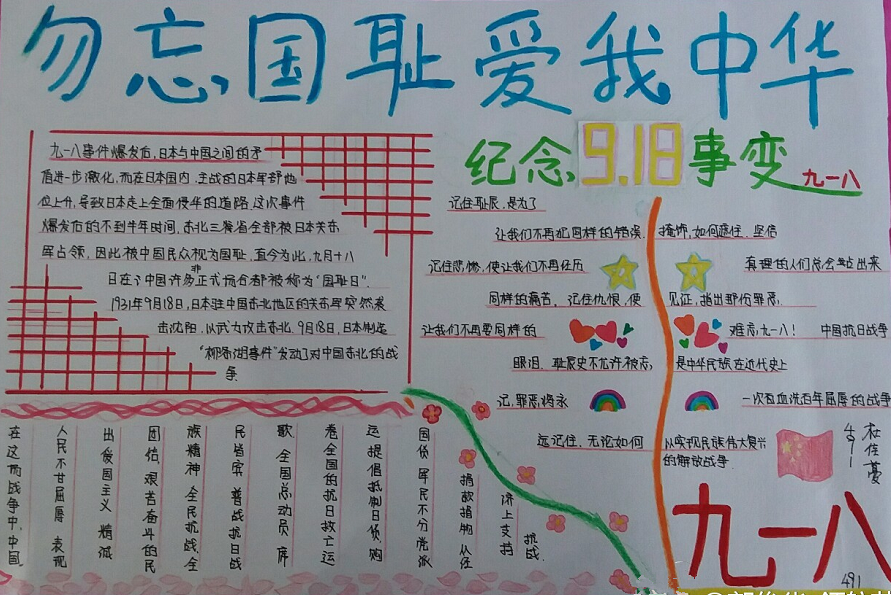 勿忘国耻爱我中华
纪念9.18事变
九一八
九一八事件爆发后,日本与中国之间的矛
盾进一步激化,而在日本国内,主战的日本军部地
位上升,导致日本走上全面侵华的道路,这次事件
爆发后的不到半年时间,东北三省全部被日本关东
军占领,因此被中国民众视为国耻,直今为此,九月十八
日在了中国许多非正式场合都被称为“国耻日”.
1931年9月18日,日本驻中国东北地区的关东军突然袭
击沈阳,以武力攻击东北,9月18日,日本制造
“柳条湖事件”发动了对中国东北的战
争
记住耻辰,是为了
让我们不再犯同样的错误,
记住悲惨,使让我们不再任历
同样的痛苦,记住仇恨,使
让我们不再要同样的
眼泪.耻辰史不允许被忘,
记,罪恶将永
远记住,无论如何
掩饰,如何遮住.坚信
真理的人们总会站出来
见证,指出那份罪恶,
难忘,九一八!
中国抗日战争
是中华民族在近代史上
一次有血洗百年屈辱的战争
从实现民族伟大复兴
的解放战争.
在这而战争中,中国
人民不甘屈辱 表现
出爱国主义 精派
团信 艰苦奋斗的民
族精神 全民抗战.全
民省实 普战抗日战
歌 全国总动员 席
卷全国的抗日救亡运
运 提倡抵制日货.购
国债 军民不分党派
捐款捐物 从任
济上支持
抗战.
491
九一八
491